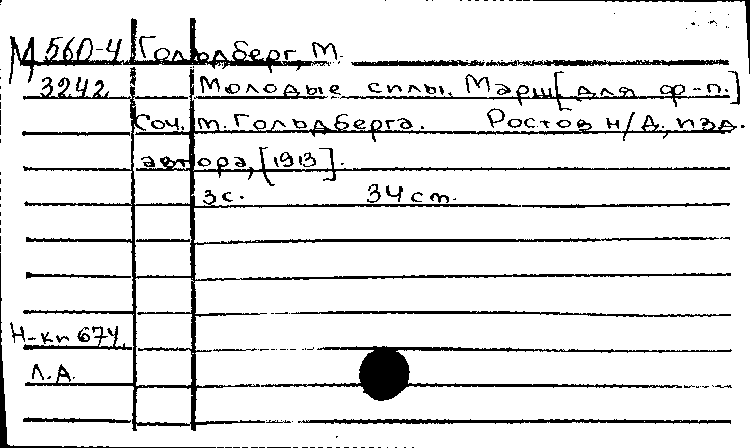 М 560-4 Гольдберг, М.
3242 Молодые силы. Марш [для ф-п.]
Соч. М. Гольдберга. Ростов н/Д., изд.
автора, [1913].
3 с. 34 см.
Н-кп 674
Л.А.